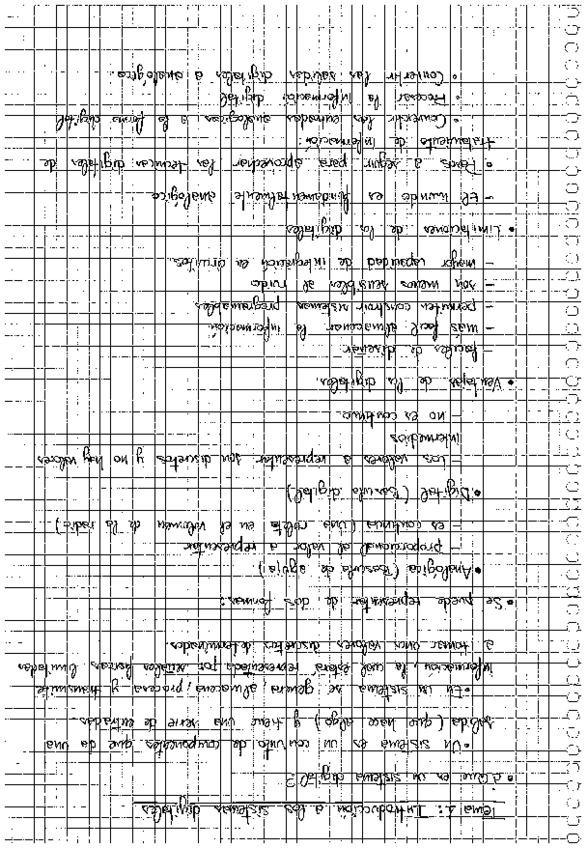 Tema 1: Introducción a los sistemas digitales
• ¿Que es un sistema digital?
• Un sistema es un conjunto de componentes que da una
salida (que hace algo) y tiene una serie de entradas
• En un sistema se genera, almacena, procesa y transmite
información, la cual estará representada por señales físicas limitadas
a tomar unos valores discretos determinados.
• Se puede representar de dos formas:
• Analógica (Báscula de aguja)
– proporcional al valor a representar
– es continua (una ruleta en el volumen de la radio)
• Digital (Báscula digital)
– los valores a representar son discretos y no hay valores
intermedios
– no es continuo
• Ventajas de los digitales
– faciles de diseñar
– más facil almacenar la información
– permiten construir sistemas programables
– son menos sensibles al ruido
– mayor capacidad de integración en circuitos.
• Limitaciones de los digitales
– El mundo es fundamentalmente analógico
• Pasos a seguir para aprovechar las tecnicas digitales de
tratamiento de información
• Convertir las entradas analogicas a la forma digital
• Procesar la información digital
• Convertir las salidas digitales a analógica.